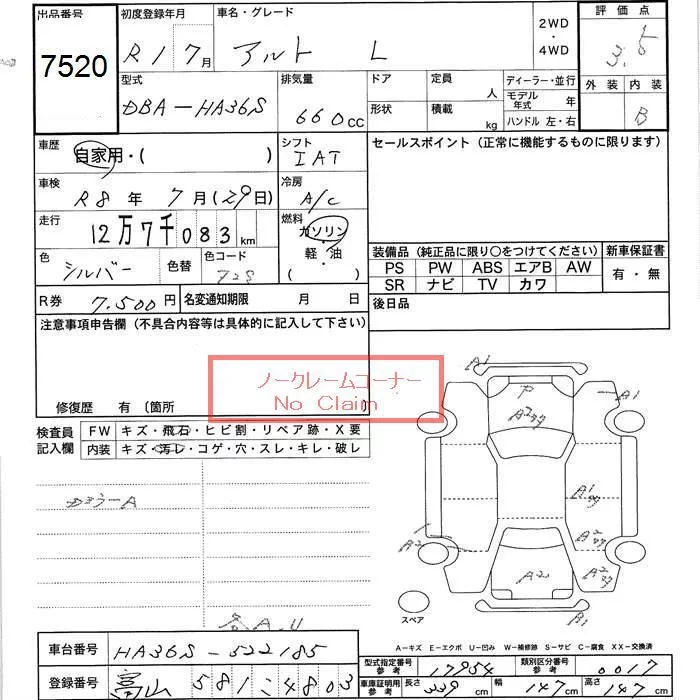 出品番号 初度登録年月 車名・グレード 2WD・4WD 評価点
7520 R1 7月 アルト L 3.5
型式 排気量 ドア 定員 人 ディーラー・並行 外装 内装
DBA-HA36S 660cc 形状 積載 kg モデル年式 年 B
ハンドル 左・右
車歴 自家用・( ) シフト IAT セールスポイント (正常に機能するものに限ります)
車検 R8年 7月(29日) 冷房 A/C
走行 12万7千083km 燃料 ガソリン・軽・油 ( )
色 シルバー 色替 色コード 装備品 (純正品に限り○をつけてください) 新車保証書
PS PW ABS エアB AW 有・無
SR ナビ TV カワ
R券 7.500円 名変通知期限 月 日 後日品
注意事項申告欄 (不具合内容等は具体的に記入して下さい)
ノークレームコーナー
No Claim
修復歴 有 〔箇所
検査員記入欄 FW キズ・飛石・ヒビ割・リペア跡・X要
内装 キズ・汚レ・コゲ・穴・スレ・キレ・破レ
A1
A1
A2
A1
A2
A2
A2
A2
B1
スペア
A-キズ E-エクボ U-凹み W-補修跡 S-サビ C-腐食 XX-交換済
車台番号 HA36S-522185 型式指定番号参考 17954 類別区分番号参考 0017
登録番号 富山 581 4803 車庫証明用参考 長さ 339cm 幅 147cm 高さ 147cm